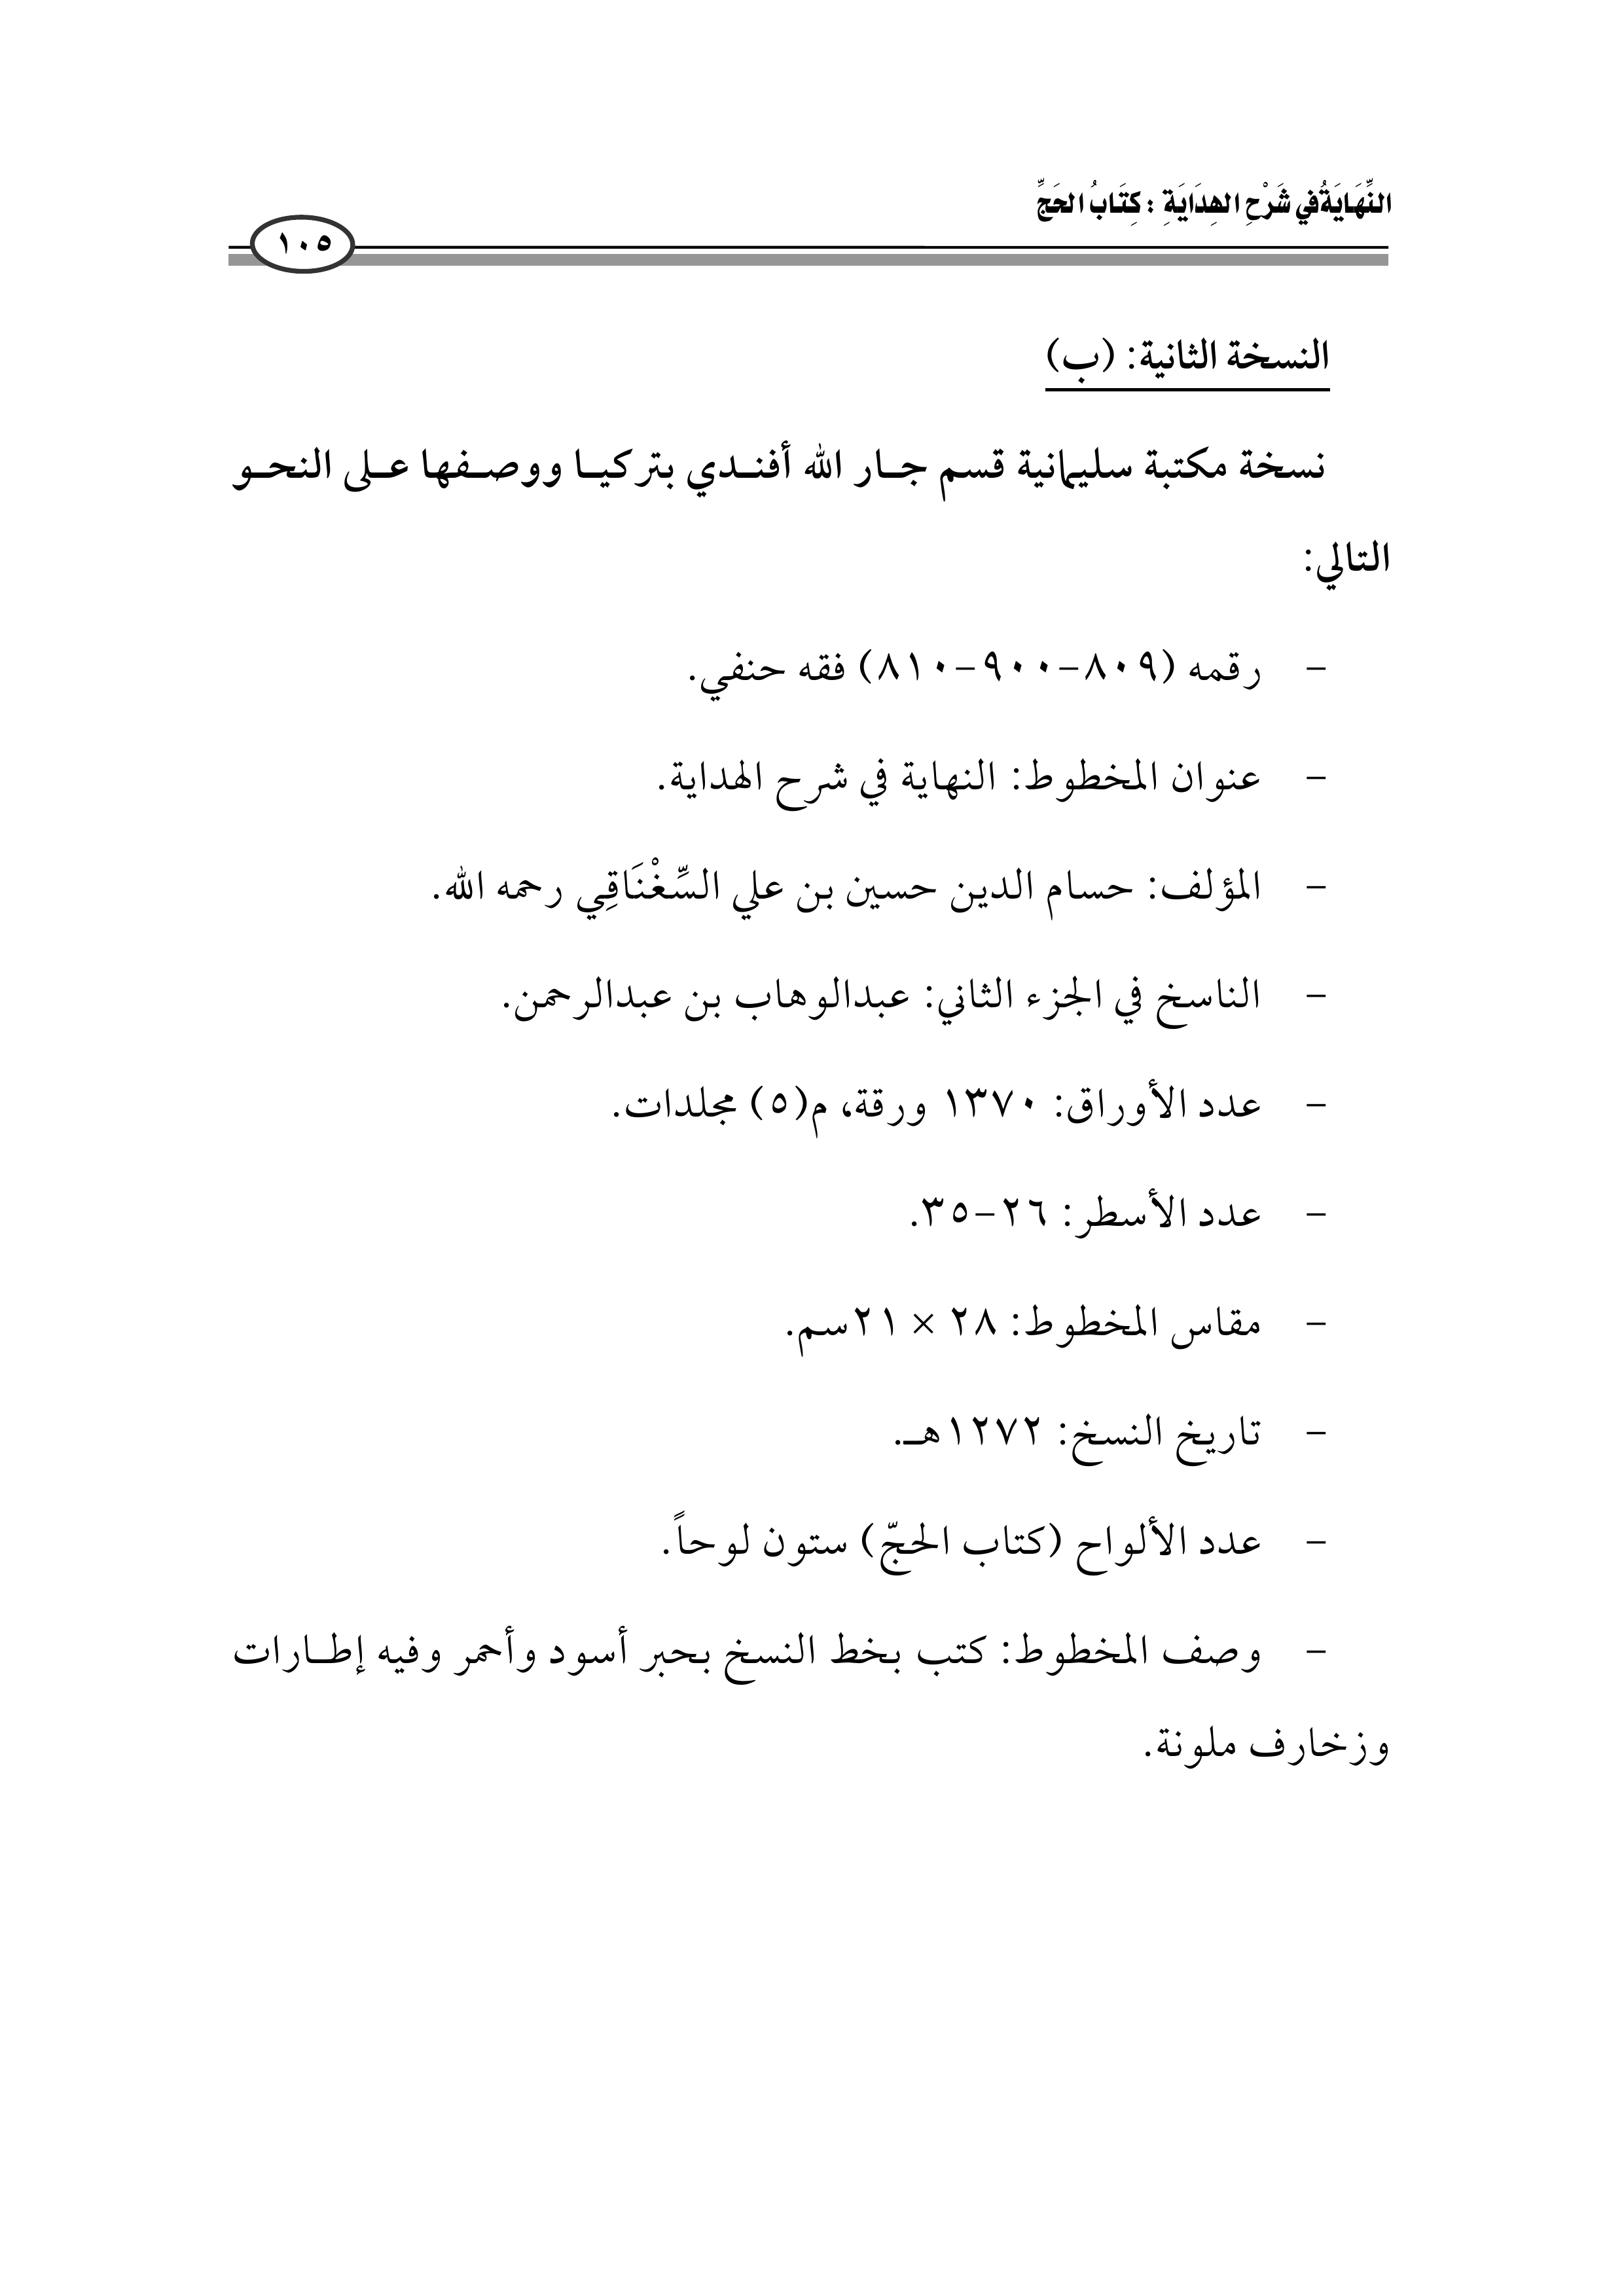 النِّهَايَةُ في شَرْحِ الهِدَايَةِ : كِتَابُ الحَجِّ
١٠٥
النسخة الثانية: (ب)
نسخة مكتبة سليمانية قسم جار الله أفندي بتركيا ووصفها على النحو
التالي:
- رقمه (٨٠٩-٩٠٠-٨١٠) فقه حنفي.
- عنوان المخطوط: النهاية في شرح الهداية.
- المؤلف: حسام الدين حسين بن علي السِّغْنَاقِي رحمه الله.
- الناسخ في الجزء الثاني: عبدالوهاب بن عبدالرحمن.
- عدد الأوراق: ١٣٧٠ ورقة، م(٥) مجلدات.
- عدد الأسطر: ٢٦-٣٥.
- مقاس المخطوط: ٢٨ × ٢١سم.
- تاريخ النسخ: ١٢٧٢هـ.
- عدد الألواح (كتاب الحجّ) ستون لوحاً.
- وصف المخطوط: كتب بخط النسخ بحبر أسود وأحمر وفيه إطارات
وزخارف ملونة.